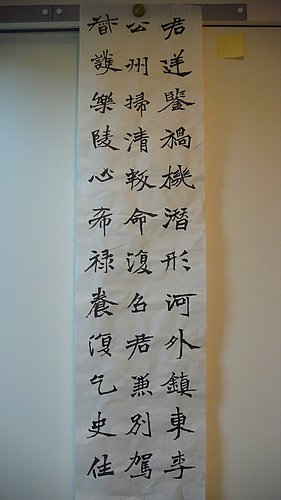 君逆鑒禍機潛形河外鎮東李
公州掃清叛命復召君兼別駕
督護樂陵心希祿養復乞史住